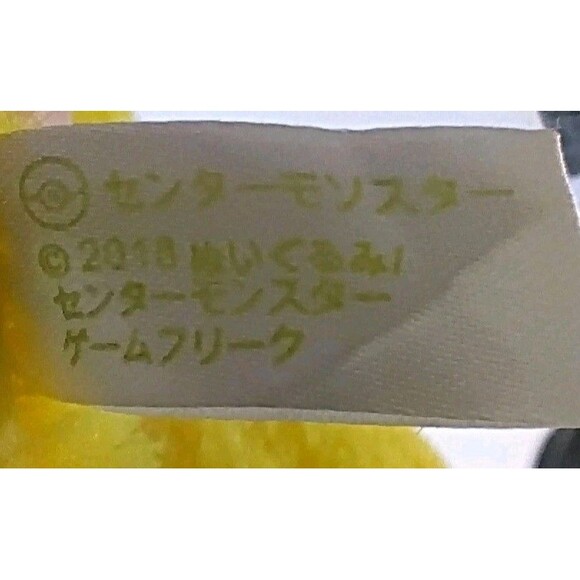 センターモンスター
© 2018 ぬいぐるみ/
センターモンスター
ゲームフリーク